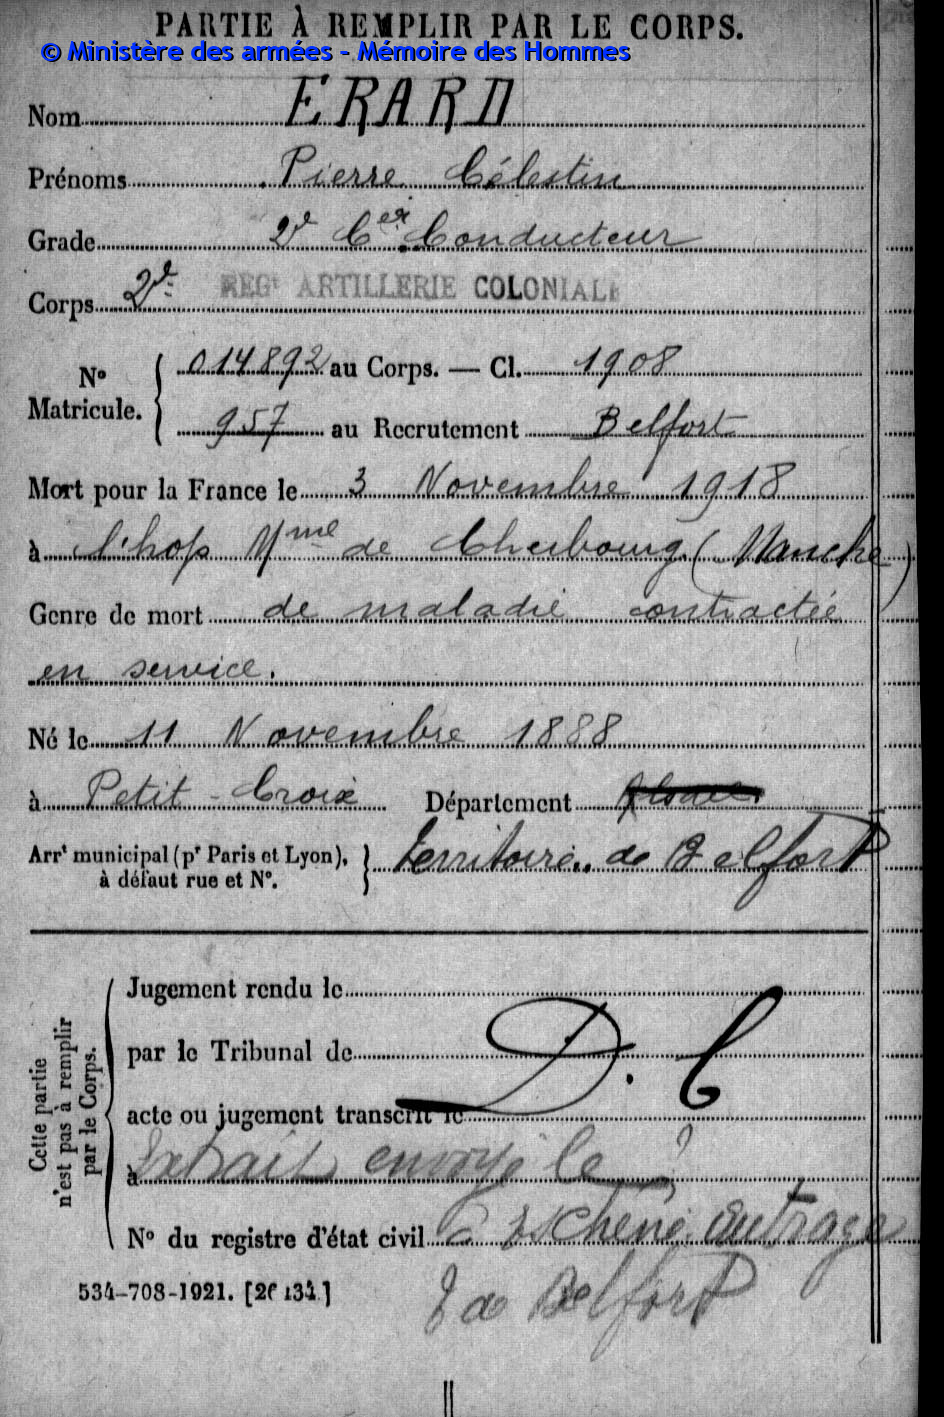 PARTIE À REMPLIR PAR LE CORPS.
© Ministère des armées - Mémoire des Hommes
Nom ERARD
Prénoms Pierre Célestin
Grade 2e Cer Conducteur
Corps 2e REGt ARTILLERIE COLONIALE
No Matricule. { 014892 au Corps. — Cl. 1908
957 au Recrutement Belfort
Mort pour la France le 3 Novembre 1918
à l'hop Mme de Cherbourg (Manche)
Genre de mort de maladie contractée
en service.
Né le 11 Novembre 1888
à Petit-Croix Département
Arrt municipal (pr Paris et Lyon), à défaut rue et No. } Territoire de Belfort
Cette partie n'est pas à remplir par le Corps.
Jugement rendu le
par le Tribunal de D. C
acte ou jugement transcrit le
à Extrait envoyé le ?
No du registre d'état civil à Eschêne Autrage
T de Belfort
534-708-1921. [26434.]